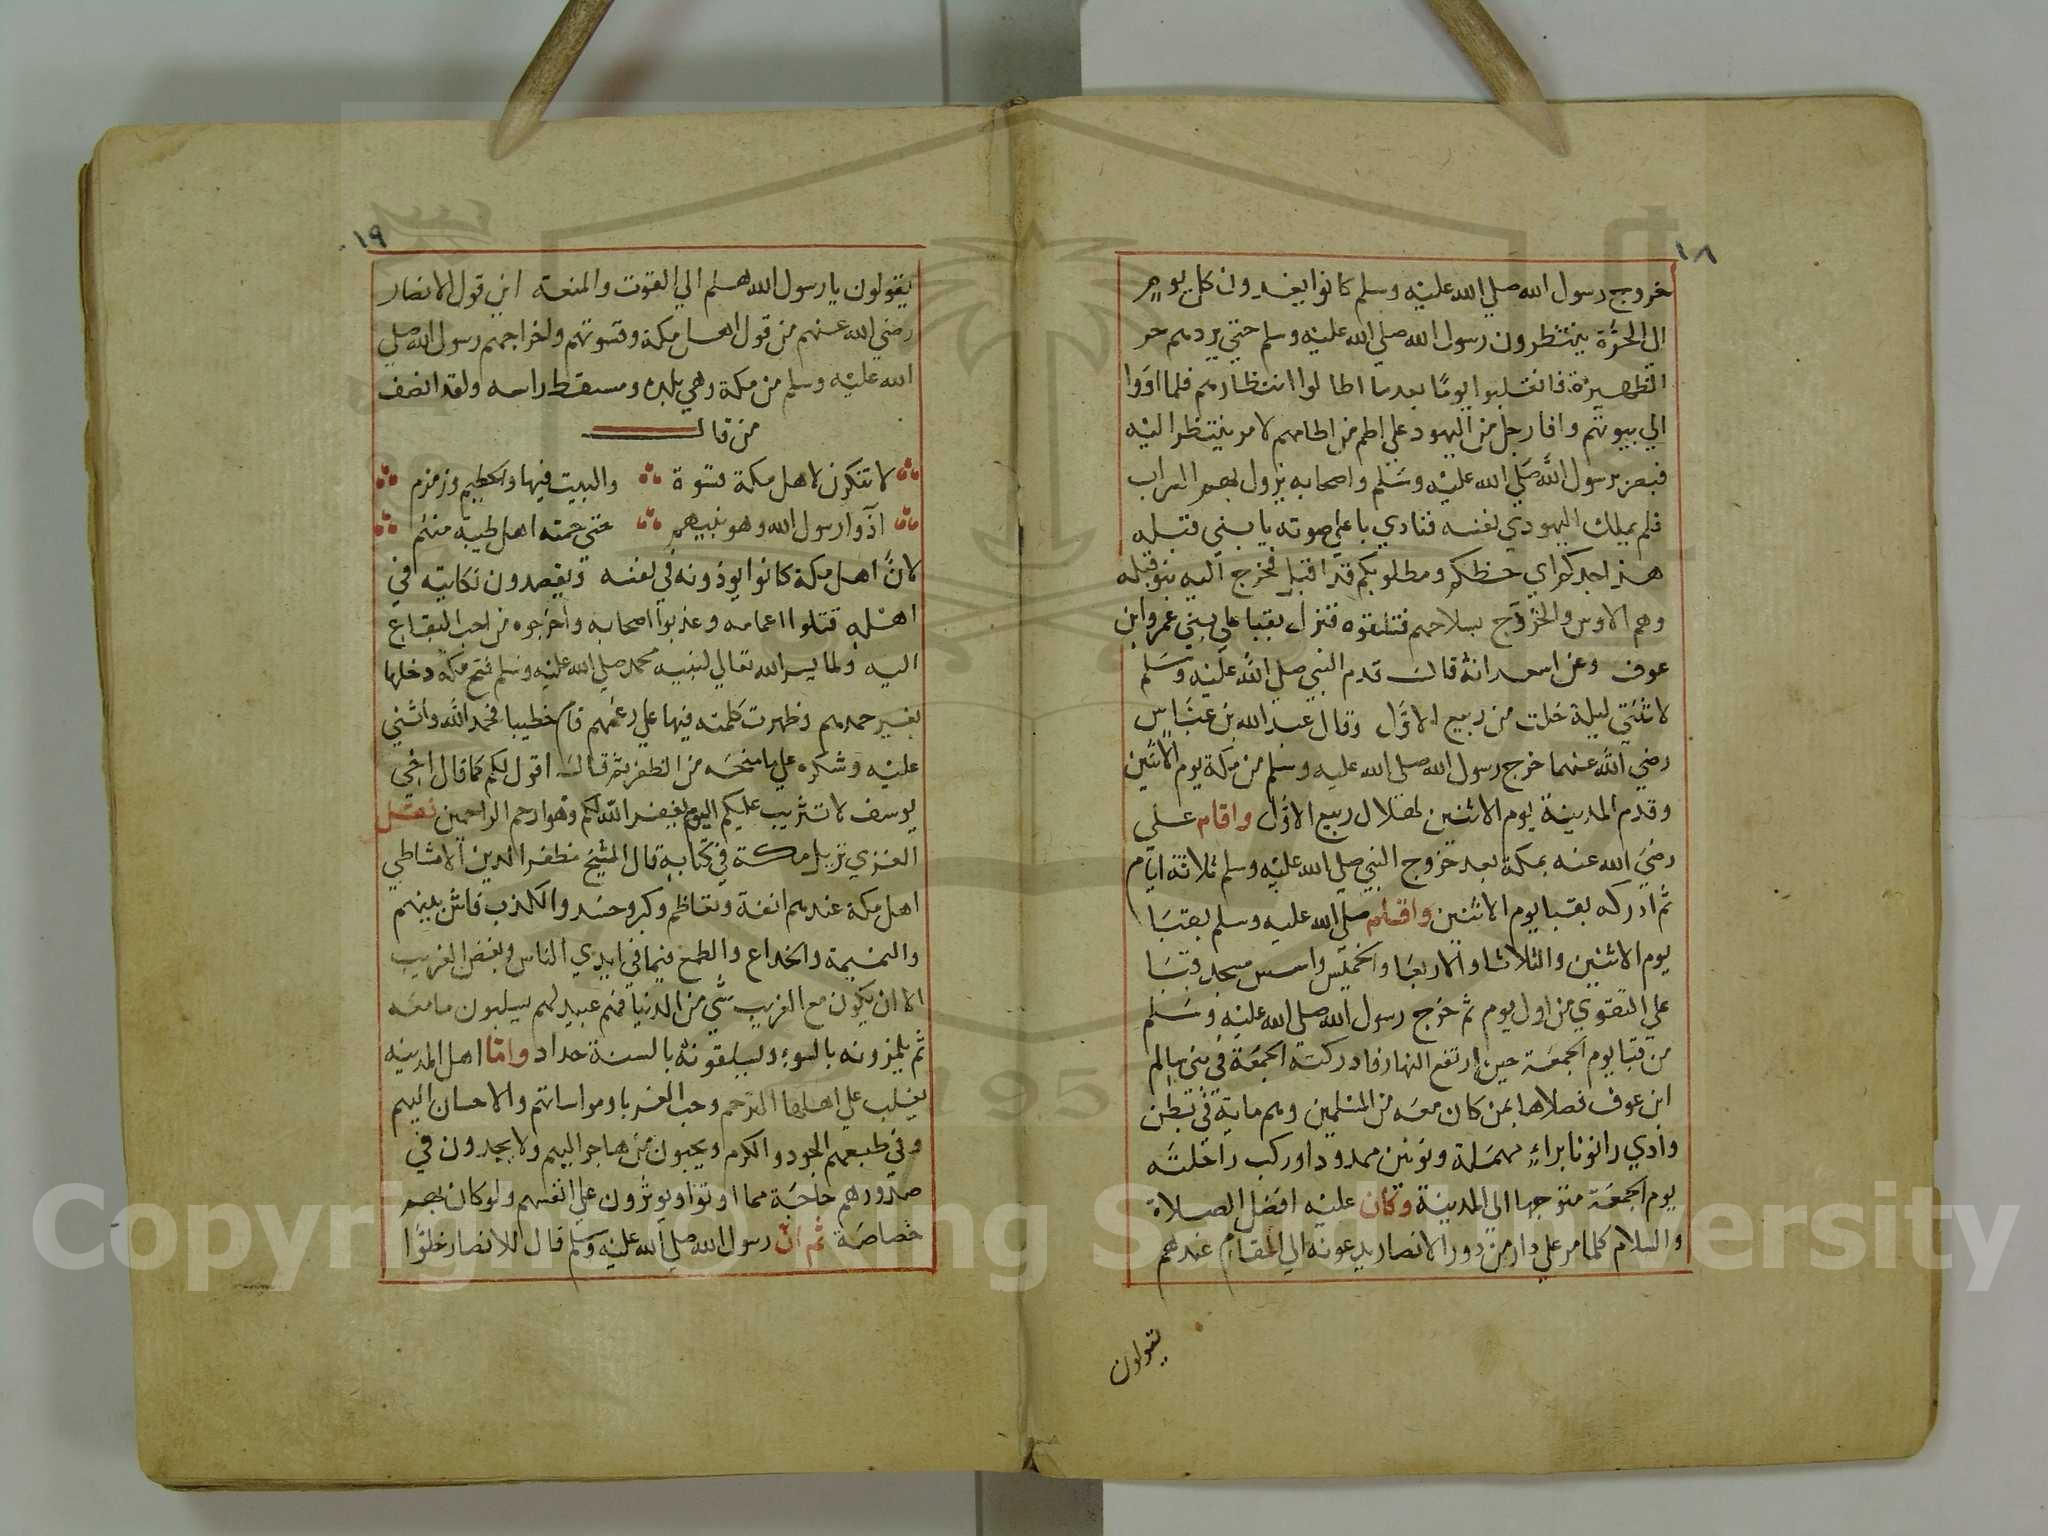 ١٨
خروج رسول الله صلي الله عليه وسلم كانوا يغدون كل يوم
الى الحرّة ينتظرون رسول الله صلي الله عليه وسلم حتي يردهم حر
الظهيرة فانقلبوا يومًا بعد ما اطالوا انتظارهم فلما اووا
الي بيوتهم وافا رجل من اليهود علي اطم من اطامهم لامر ينتظر اليه
فبصر برسول الله صلي الله عليه وسلم واصحابه يزول بهم السراب
فلم يملك اليهودي نفسه فنادي باعلي صوته يا بني قيله
هذا جدكم اي حظكم ومطلوبكم قد اقبل فخرج اليه بنو قيله
وهم الاوس والخزرج بسلاحهم فتلقوه فنزل بقبا علي بني عمرو ابن
عوف وعن اسعد انه قال قدم النبي صلي الله عليه وسلم
لاثنتي ليلة خلت من ربيع الاوّل وقال عبد الله بن عبّاس
رضي الله عنهما خرج رسول الله صلي الله عليه وسلم من مكة يوم الاثنين
وقدم المدينة يوم الاثنين لهلال ربيع الاوّل واقام علي
رضي الله عنه بمكة بعد خروج النبي صلي الله عليه وسلم ثلاثة ايام
ثم ادركه بقبا يوم الاثنين واقام صلي الله عليه وسلم بقبا
يوم الاثنين والثلاثا والاربعا والخميس واسس مسجد قبا
علي التقوي من اول يوم ثم خرج رسول الله صلي الله عليه وسلم
من قبا يوم الجمعة حين ارتفع النهار فادركته الجمعة في بني سالم
ابن عوف فصلاها بمن كان معه من المسلمين وهم ماية في بطن
وادي رانونا براءٍ مهملة ونونين ممدودا وركب راحلته
يوم الجمعة متوجها الي المدينة وكان عليه افضل الصلاة
والسلام كلما مر علي دار من دور الانصار يدعونه الي المقام عندهم
يقولون
١٩
يقولون يا رسول الله هلم الي القوت والمنعة اين قول الانصار
رضي الله عنهم من قول اهل مكة وقسوتهم واخراجهم رسول الله صلي
الله عليه وسلم من مكة وهي بلده ومسقط راسه ولقد انصف
من قال
لا تنكرن لاهل مكة قسوة والبيت فيها والحطيم وزمزم
آذوا رسول الله وهو نبيهم حتي حمته اهل طيبة منهُم
لانّ اهل مكة كانوا يوذونه في نفسه ويقصدون نكايته في
اهله قتلوا اعمامه وعذبوا اصحابه واخرجوه من احب البقاع
اليه ولما يسر الله تعالي لنبيه محمد صلي الله عليه وسلم فتح مكة دخلها
بغير حمدهم وظهرت كلمته فيها علي رغمهم قام خطيبا فحمد الله واثني
عليه وشكره علي ما منحه من الظفر ثم قال اقول لكم كما قال اخي
يوسف لا تثريب عليكم اليوم يغفر الله لكم وهو ارحم الراحمين نقل
العزي نزيل مكة في كتابه قال الشيخ مظفر الدين الامشاطي
اهل مكة عندهم انفة وتعاظم وكبر وحسد والكذب فاش بينهم
والنميمة والخداع والطمع فيما في ايدي الناس وبغض الغريب
الا ان يكون مع الغريب شي من الدنيا فهم عبيد لهم يسلبون ما معه
ثم يلمزونه بالسوء ويسلقونه بالسنة حداد وامّا اهل المدينه
يغلب علي اهلها الترحم وحب الغربا ومواساتهم والاحسان اليهم
وفي طبعهم الجود والكرم ويحبون من هاجر اليهم ولا يجدون في
صدورهم حاجة مما اوتوا ويوثرون علي انفسهم ولو كان بهم
خصاصة ثم انّ رسول الله صلي الله عليه وسلم قال للانصار خلوا
Copyright © King Saud University
1957